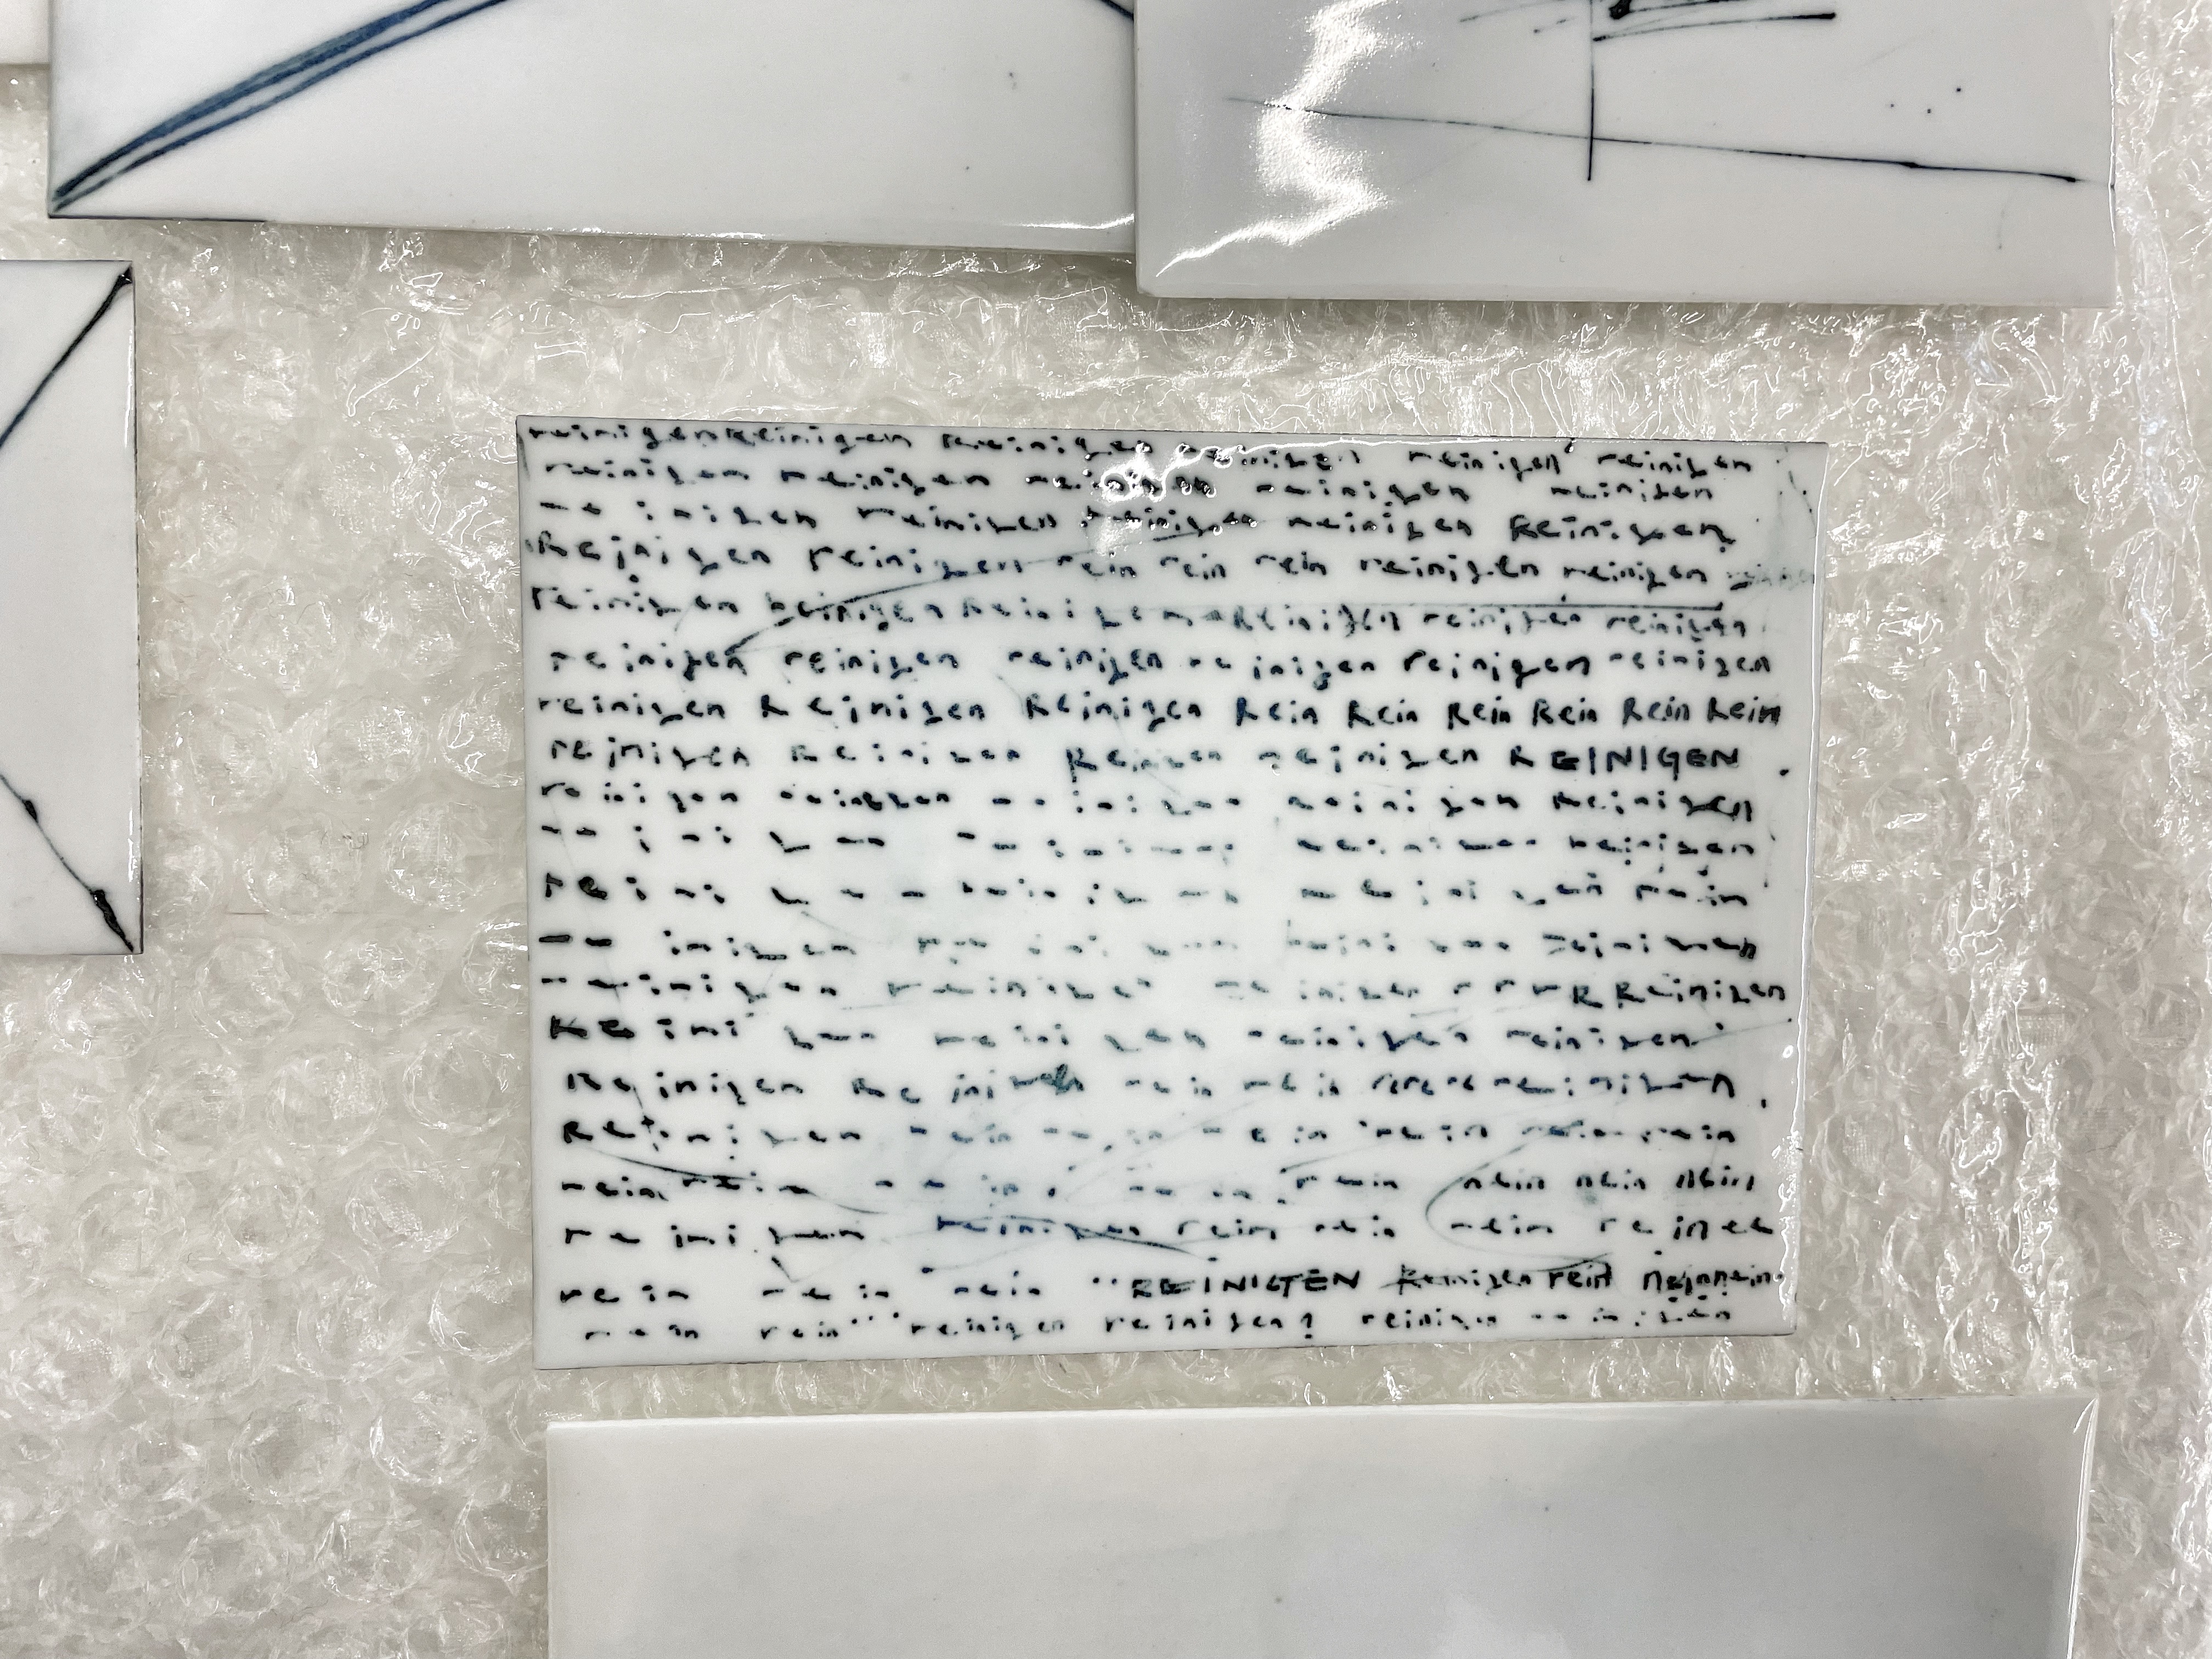 reinigen Reinigen Reinigen reinigen reinigen reinigen
reinigen reinigen reinigen reinigen reinigen
reinigen reinigen reinigen reinigen Reinigen
Reinigen reinigen rein rein rein reinigen reinigen
reinigen reinigen Reinigen Reinigen reinigen reinigen
reinigen reinigen reinigen reinigen reinigen reinigen
reinigen Reinigen Reinigen Rein Rein Rein Rein Rein Rein
reinigen Reinigen Reinigen reinigen REINIGEN
reinigen reinigen reinigen reinigen reinigen
reinigen reinigen reinigen reinigen
reinigen reinigen reinigen rein
reinigen reinigen reinigen reinigen
reinigen reinigen reinigen r r r R Reinigen
Reinigen reinigen reinigen reinigen
Reinigen Reinigen rein rein reinigen
Reinigen rein rein rein rein rein
rein rein rein rein rein nein nein nein
reinigen reinigen rein rein rein
rein rein rein REINIGEN Reinigen rein neinnein
rein rein reinigen reinigen? reinigen reinigen